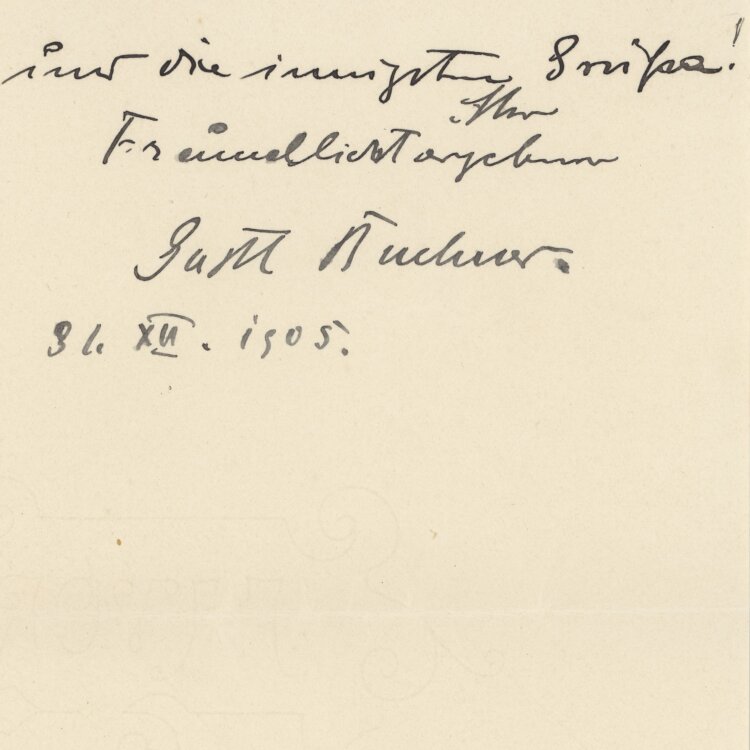 und die innigsten Grüße!
Ihr
Freundlichst ergebener
31. XII. 1905.